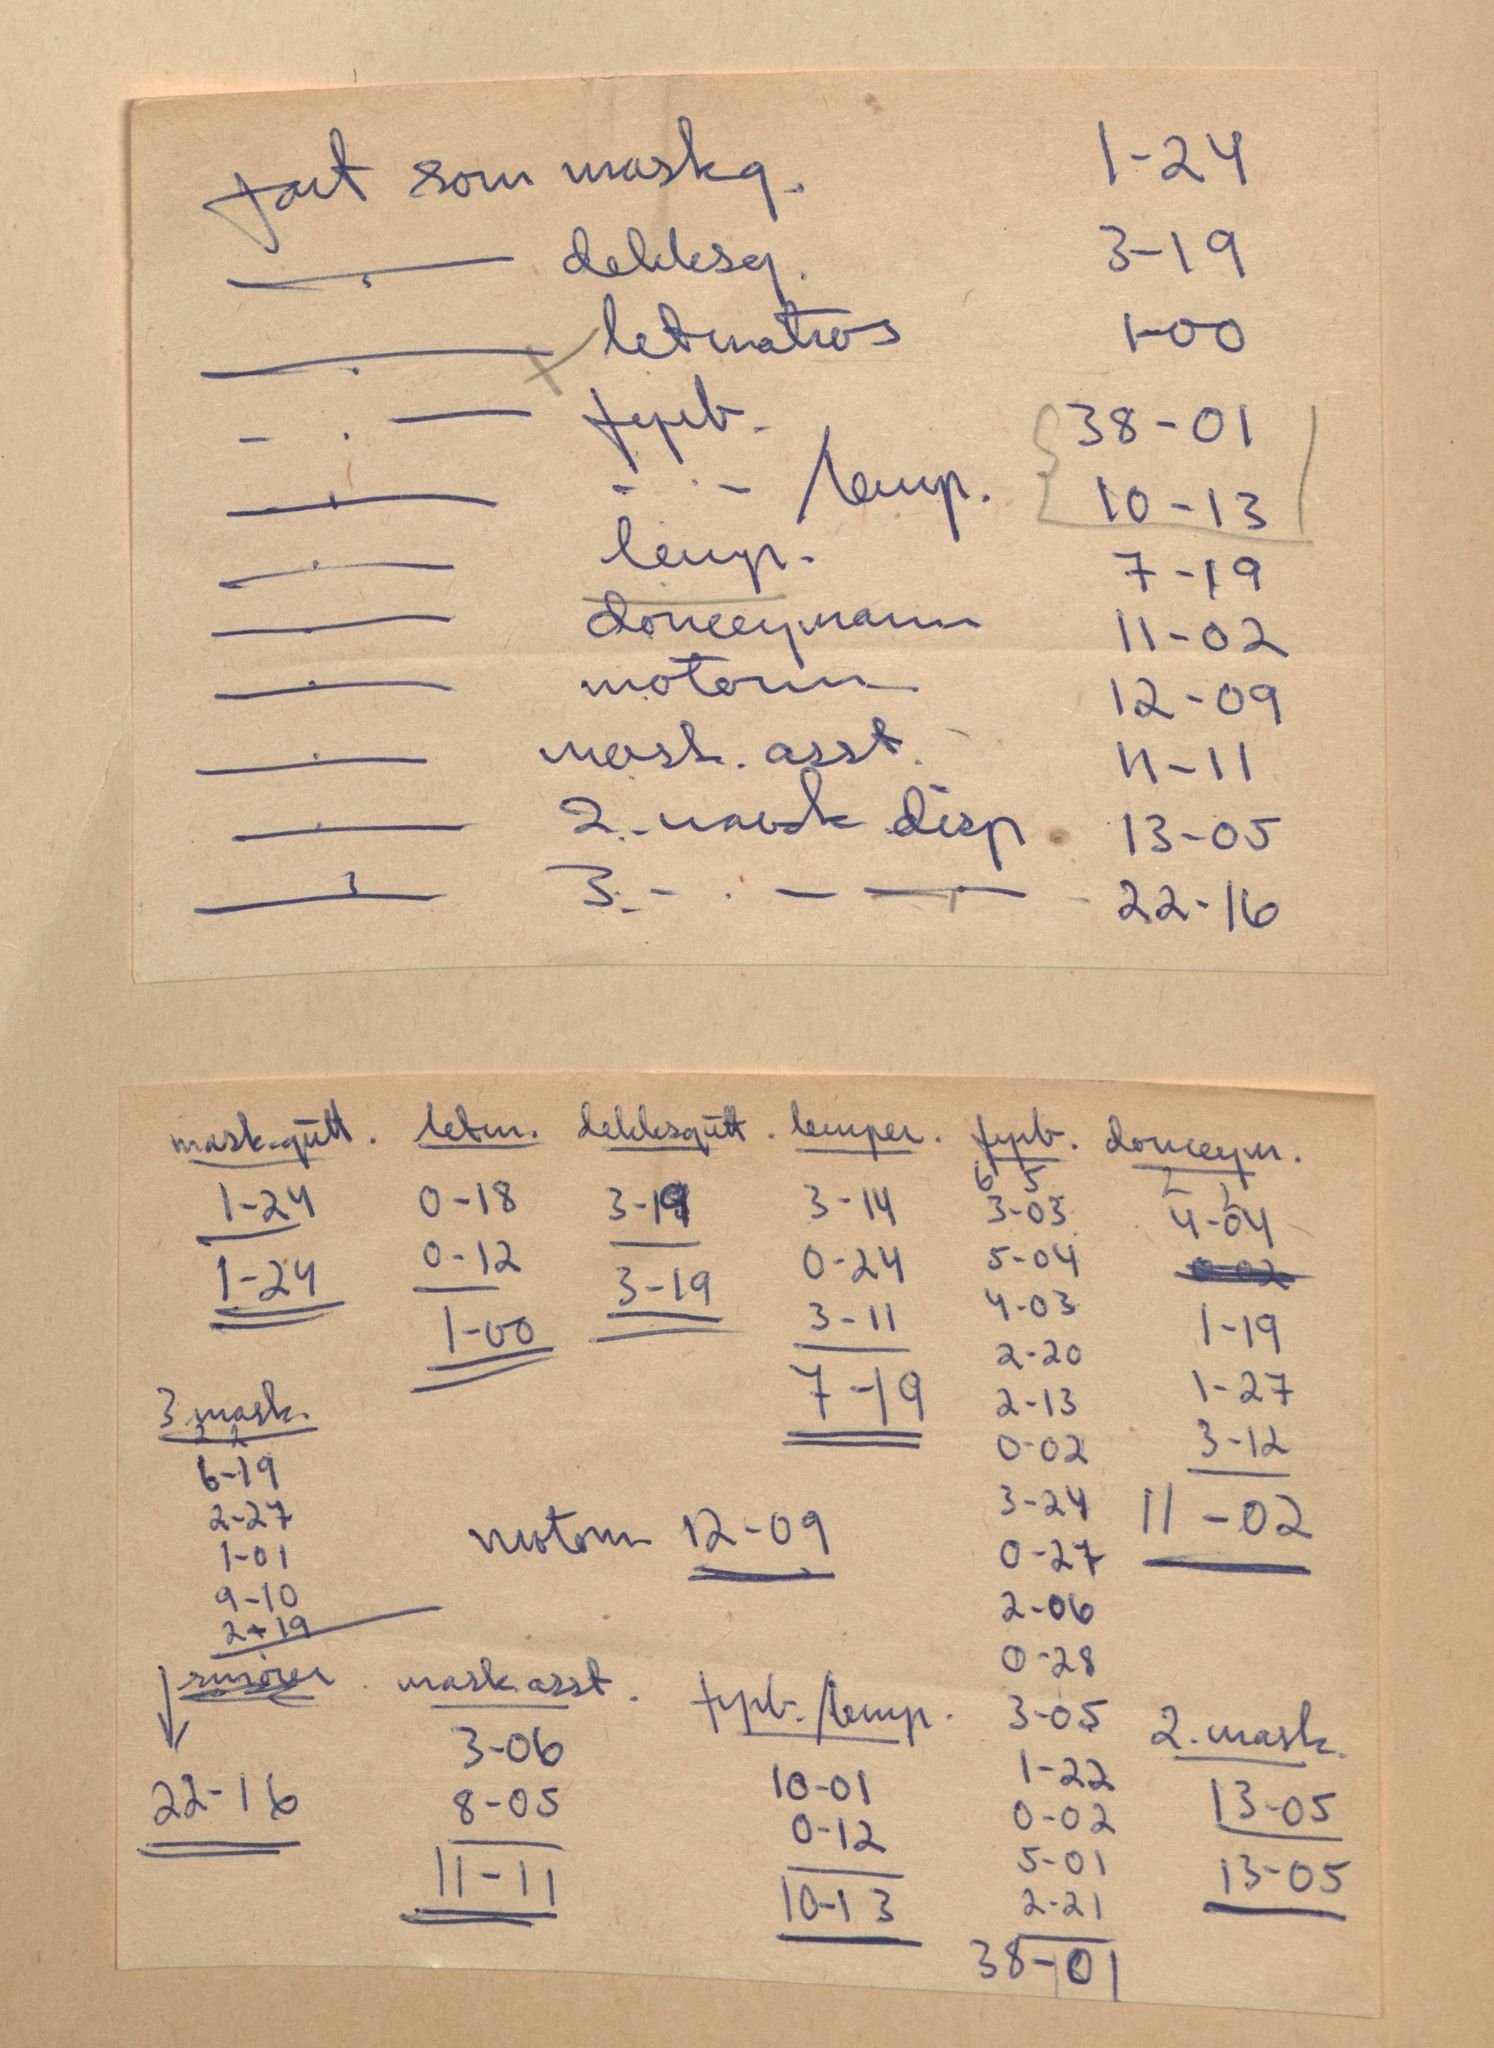 fart som maskg. 1-24
—〃— dekksg. 3-19
—〃— letmatros 1-00
- 〃 — fyrb. 38-01
—〃— - 〃 - / lemp. 10-13
—〃— lemp. 7-19
—〃— donceymann 11-02
—〃— motorm 12-09
—〃— mask. asst. 11-11
—〃— 2. mask disp 13-05
—〃— 3. - 〃 - —〃— 22-16
mask.gutt. letm. dekksgutt. lemper. fyrb. donceym.
6 5 2 1
1-24 0-18 3-19 3-14 3-03 4-04
1-24 0-12 3-19 0-24 5-04 0-02
1-00 3-11 4-03 1-19
7-19 2-20 1-27
3 mask. 2-13 3-12
3 2 0-02 11-02
6-19 3-24
2-27 motorm 12-09 0-27
1-01 2-06
9-10 0-28
2-19 3-05
smører. mask asst. fyrb./lemp. 1-22 2. mask.
22-16 3-06 10-01 0-02 13-05
8-05 0-12 5-01 13-05
11-11 10-13 2-21
38-01